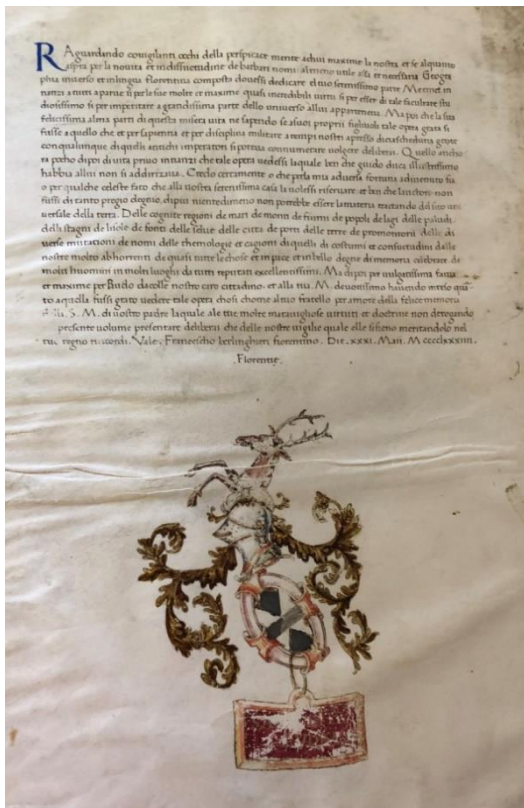 RAguardando co uigilanti occhi della perspicace mente achui maxime la nostra et se alquanto
aspra per la nouita et indissuetudine de barbari nomi almeno utile alta et necessaria Geogra
phia uniuerso et in lingua florentina composta douessi dedicare el tuo serenissimo parte Mennet in
nanzi a tutti aparue si per la sue molte et maxime quasi incredibili uirtu si per esser di tale facultate stu
diosissimo si per imperitare a grandissima parte dello uniuerso allui appartenersi. Ma poi che la sua
felicissima alma parti di questa misera uita ne sapendo se a suoi proprii figliuoli tale opera grata si
fusse a quello che et per sapientia et per disciplina militare a tempi nostri apresso di ciaschuduna gente
con qualunque di quelli antichi imperatori si poteua connumerare uolgere deliberai. Quello ancho
ra pocho dipoi di uita priuo innanzi che tale opera uedessi laquale ben che guido duca illustrissimo
habbia allui non si addirizaua. Credo certamente o che per la mia aduersa fortuna adiuenuto sia
o per qualche celeste fato che alla nostra serenissima casa la uolessi riseruare et ben che lauctore non
fussi di tanto pregio degnio, dipoi nientedimeno non potrebbe essere la materia tractando del sito uni
uersale della terra. Delle cognite regioni de mari de monti de fiumi de popoli de lagi delle paludi.
delli stagni de luiole de fonti delle selue delle citta de porti delle terre de promontorii delle di
uerse mutationi de nomi delle themologie et cagioni di quelli di costumi et consuetudini dalle
nostre molto abhorrenti de quasi tutte le chose et in pace et in bello degne di memoria celebrate da
molti huomini in molti luoghi da tutti reputati excellentissimi. Ma dipoi per uulgatissima fama
et maxime per Paulo da colle nostro caro cittadino et alla tua .M. deuotissimo hauendo inteso qua
to aquella fussi grato uedere tale opera chosi chome al tuo fratello per amore della felice memoria
S. M. di nostro padre laquale al le tue molte marauigliose uirtuti et doctrine non derogando
presente uolume presentare deliberai che delle nostre uigilie quale elle sieno meritandolo nel
tuo regno riscondi. Vale. Francescho berlinghieri fiorentino. Die .xxxi. Maii. M cccclxxxiiii.
.Florentie.